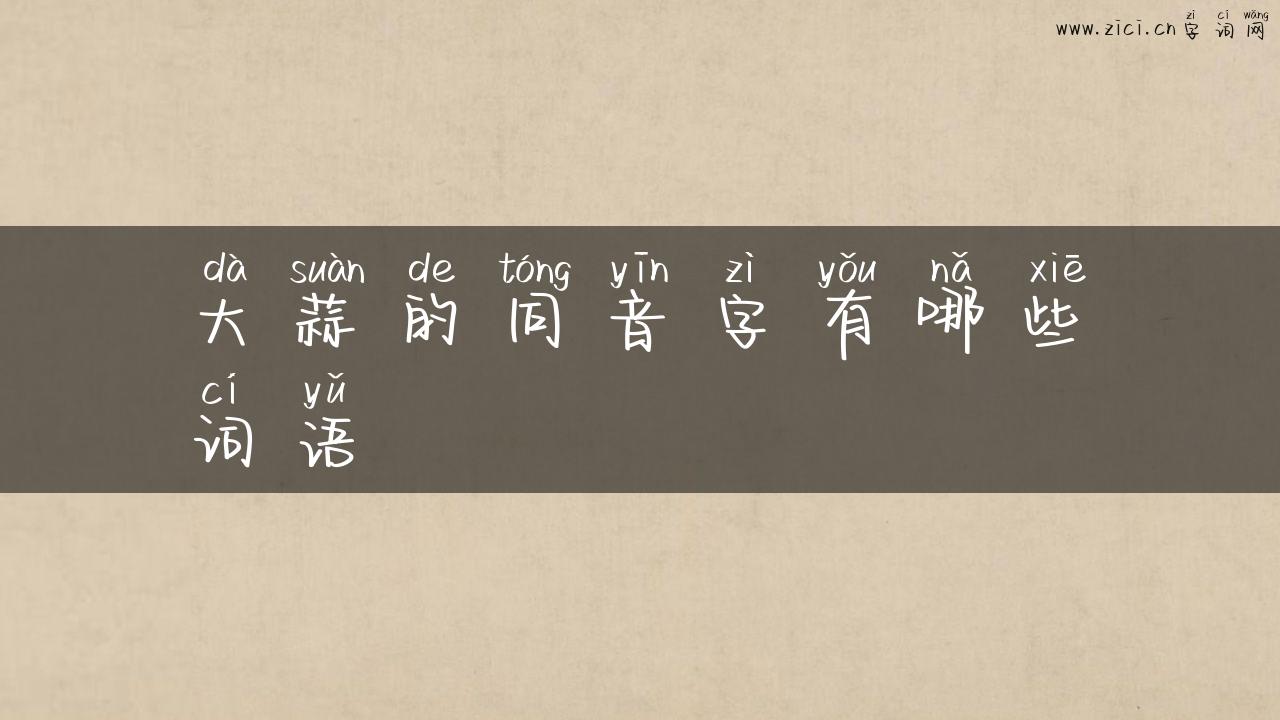 zì cí wǎng
www.zici.cn 字词网
dà suàn de tóng yīn zì yǒu nǎ xiē
大蒜的同音字有哪些
cí yǔ
词语